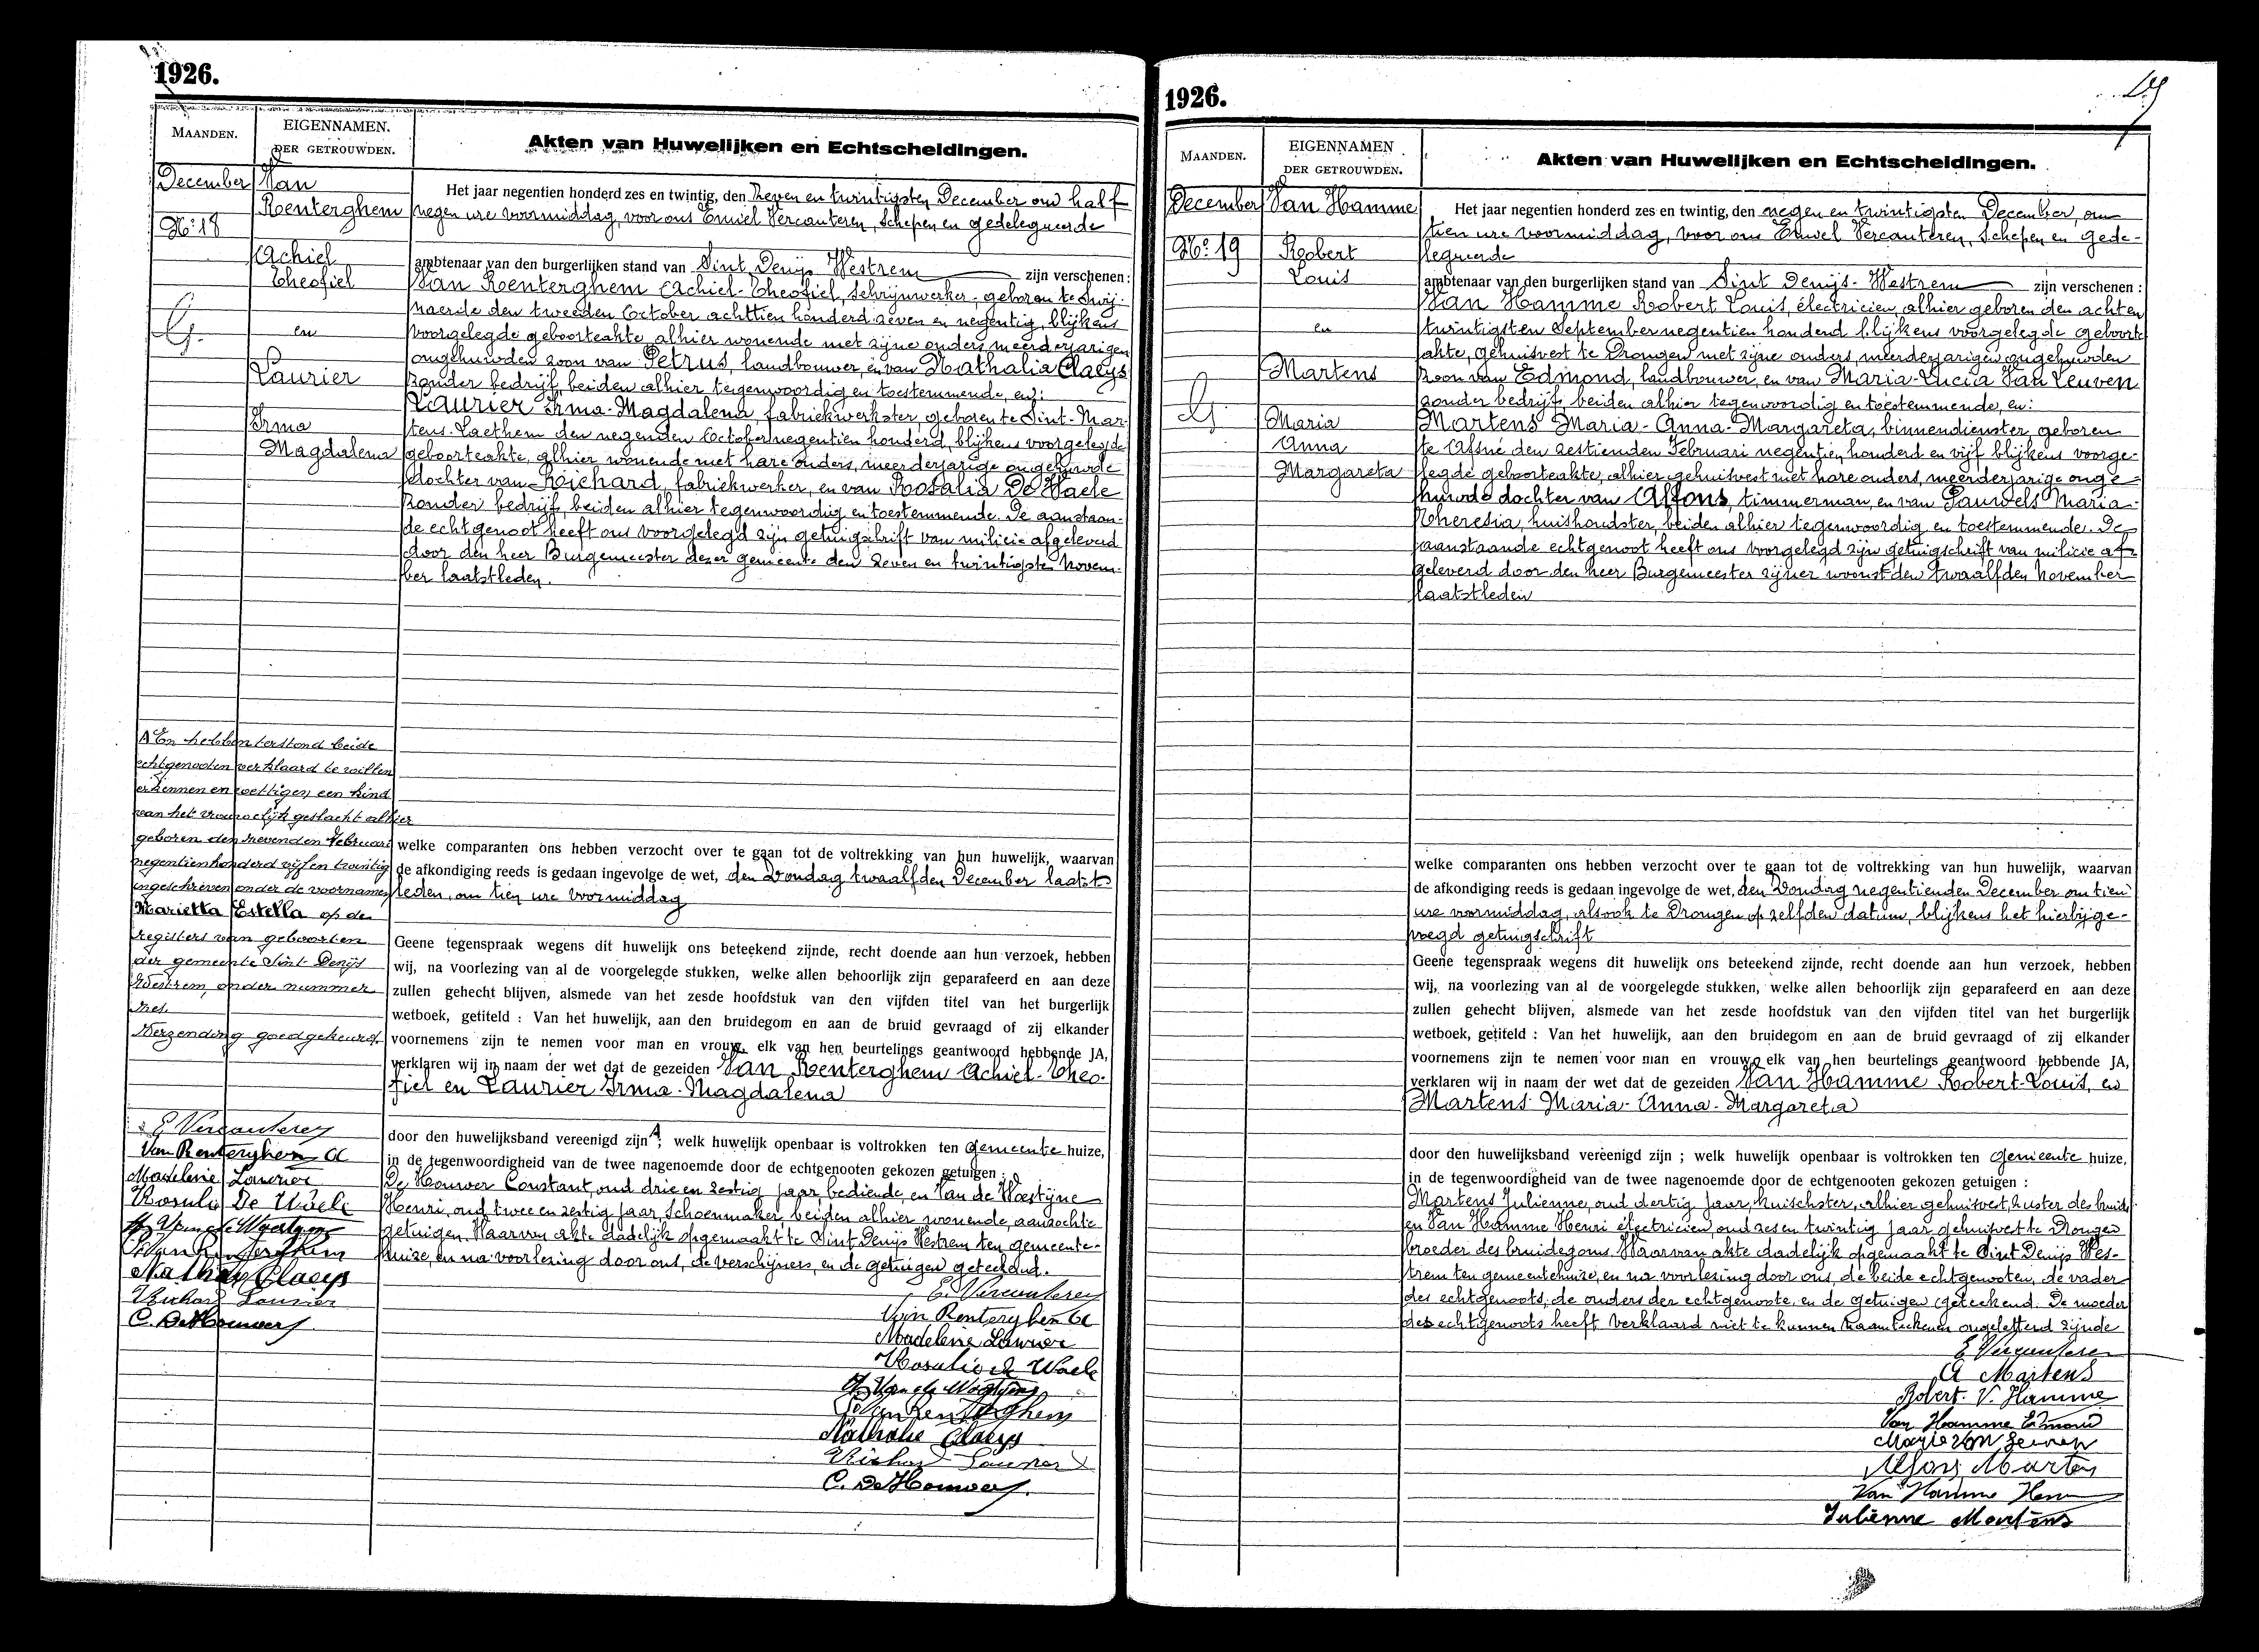 1926.
MAANDEN.
EIGENNAMEN.
DER GETROUWDEN.
Akten van Huwelijken en Echtscheidingen.
December
No: 18
Van
Renterghem
Achiel
Theofiel
en
Laurier
Irma
Magdalena
Het jaar negentien honderd zes en twintig, den zeven en twintigsten December om half
negen ure voormiddag, voor ons Emiel Vercauteren, Schepen en gedelegueerde
ambtenaar van den burgerlijken stand van Sint Denijs Westrem zijn verschenen:
Van Renterghem Achiel-Theofiel, schrijnwerker, geboren te Zwij-
naerde den tweeden October achttien honderd zeven en negentig, blijkens
voorgelegde geboorteakte, alhier wonende met zijne ouders, meerderjarigen
ongehuwden zoon van Petrus, landbouwer, en van Nathalia Claeys
zonder bedrijf, beiden alhier tegenwoordig en toestemmende, en:
Laurier Irma-Magdalena, fabriekwerkster, geboren te Sint-Mar-
tens-Laethem den negenden October negentien honderd, blijkens voorgelegde
geboorteakte, alhier wonende met hare ouders, meerderjarige ongehuwde
dochter van Richard, fabriekwerker, en van Rosalia De Waele
zonder bedrijf, beiden alhier tegenwoordig en toestemmende. De aanstaan-
de echtgenoot heeft ons voorgelegd zijn getuigschrift van milicie afgeleverd
door den heer Burgemeester dezer gemeente den zeven en twintigsten Novem-
ber laatstleden.
A En hebben terstond beide
echtgenooten verklaard te willen
erkennen en wettigen een kind
van het vrouwelijk geslacht alhier
geboren den zevenden Februari
negentienhonderd vijf en twintig
ingeschreven onder de voornamen
Marietta Estella op de
registers van geboorten
der gemeente Sint Denijs
Westrem, onder nummer
zes.
Verzending goedgekeurd.
E Vercauteren
Van Renterghem A
Madeleine Laurier
Rosalie De Waele
H. Van de Woestyne
P Van Renterghem
Nathalie Claeys
Richard Laurier
C. De Houwer
welke comparanten ons hebben verzocht over te gaan tot de voltrekking van hun huwelijk, waarvan
de afkondiging reeds is gedaan ingevolge de wet, den Zondag twaalfden December laatst-
leden, om tien ure voormiddag
Geene tegenspraak wegens dit huwelijk ons beteekend zijnde, recht doende aan hun verzoek, hebben
wij, na voorlezing van al de voorgelegde stukken, welke allen behoorlijk zijn geparafeerd en aan deze
zullen gehecht blijven, alsmede van het zesde hoofdstuk van den vijfden titel van het burgerlijk
wetboek, getiteld : Van het huwelijk, aan den bruidegom en aan de bruid gevraagd of zij elkander
voornemens zijn te nemen voor man en vrouw, elk van hen beurtelings geantwoord hebbende JA,
verklaren wij in naam der wet dat de gezeiden Van Renterghem Achiel-Theo-
fiel en Laurier Irma-Magdalena
door den huwelijksband vereenigd zijn A; welk huwelijk openbaar is voltrokken ten gemeente huize,
in de tegenwoordigheid van de twee nagenoemde door de echtgenooten gekozen getuigen :
De Houwer Constant, oud drie en zestig jaar, bediende, en Van de Woestijne
Henri, oud twee en zestig jaar, schoenmaker, beiden alhier wonende, aanzochte
getuigen. Waarvan akte dadelijk opgemaakt te Sint Denijs Westrem ten gemeente-
huize, en na voorlezing door ons, de verschijners, en de getuigen geteekend.
E. Vercauteren
Van Renterghem A
Madeleine Laurier
Rosalie de Waele
H. Van de Woestyne
P Van Renterghem
Nathalie Claeys
Richard Laurier
C. De Houwer
1926.
19
MAANDEN.
EIGENNAMEN
DER GETROUWDEN.
Akten van Huwelijken en Echtscheidingen.
December
No: 19
Van Hamme
Robert
Louis
en
Martens
Maria
Anna
Margareta
Het jaar negentien honderd zes en twintig, den negen en twintigsten December, om
tien ure voormiddag, voor ons Emiel Vercauteren, Schepen en gede-
legueerde
ambtenaar van den burgerlijken stand van Sint Denijs-Westrem zijn verschenen :
Van Hamme Robert Louis, électricien, alhier geboren den achten
twintigsten September negentien honderd blijkens voorgelegde geboorte
akte, gehuisvest te Drongen met zijne ouders, meerderjarigen ongehuwden
zoon van Edmond, landbouwer, en van Maria-Lucia Van Leuven
zonder bedrijf, beiden alhier tegenwoordig en toestemmende, en:
Martens Maria-Anna-Margareta, binnendienster, geboren
te Afsné den zestienden Februari negentien honderd en vijf blijkens voorge-
legde geboorteakte, alhier gehuisvest met hare ouders, meerderjarige onge-
huwde dochter van Alfons, timmerman, en van Pauwels Maria-
Theresia, huishoudster, beiden alhier tegenwoordig en toestemmende. De
aanstaande echtgenoot heeft ons voorgelegd zijn getuigschrift van milicie af-
geleverd door den heer Burgemeester zijner woonst den twaalfden November
laatstleden
welke comparanten ons hebben verzocht over te gaan tot de voltrekking van hun huwelijk, waarvan
de afkondiging reeds is gedaan ingevolge de wet, den Zondag negentienden December om tien
ure voormiddag, alsook te Drongen op zelfden datum, blijkens het hierbijge-
voegd getuigschrift
Geene tegenspraak wegens dit huwelijk ons beteekend zijnde, recht doende aan hun verzoek, hebben
wij, na voorlezing van al de voorgelegde stukken, welke allen behoorlijk zijn geparafeerd en aan deze
zullen gehecht blijven, alsmede van het zesde hoofdstuk van den vijfden titel van het burgerlijk
wetboek, getiteld : Van het huwelijk, aan den bruidegom en aan de bruid gevraagd of zij elkander
voornemens zijn te nemen voor man en vrouw, elk van hen beurtelings geantwoord hebbende JA,
verklaren wij in naam der wet dat de gezeiden Van Hamme Robert-Louis, en
Martens Maria-Anna-Margareta
door den huwelijksband vereenigd zijn ; welk huwelijk openbaar is voltrokken ten Gemeente huize,
in de tegenwoordigheid van de twee nagenoemde door de echtgenooten gekozen getuigen :
Martens Julienne, oud dertig jaar, kuischster, alhier gehuisvest, zuster der bruid
en Van Hamme Henri électricien, oud zes en twintig jaar gehuisvest te Drongen
broeder des bruidegoms. Waarvan akte dadelijk opgemaakt te Sint Denijs Wes-
trem ten gemeentehuize, en na voorlezing door ons, de beide echtgenooten, de vader
des echtgenoots, de ouders der echtgenoote, en de getuigen geteekend. De moeder
des echtgenoots heeft verklaard niet te kunnen naamteekenen ongeletterd zijnde
E Vercauteren
A Martens
Robert. V. Hamme
Van Hamme Edmond
Marie Van Leuven
Alfons Martens
Van Hamme Henri
Julienne Martens